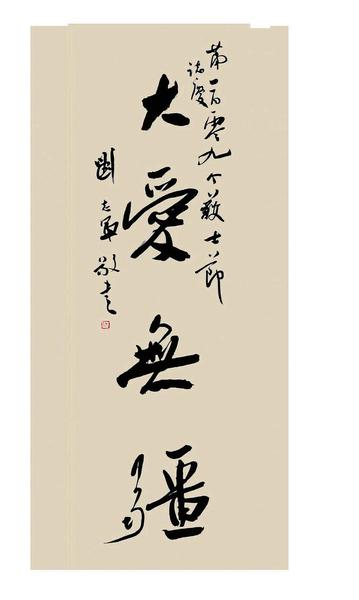 第一百零九个護士節
誌慶
大愛無疆
劉志軍敬書